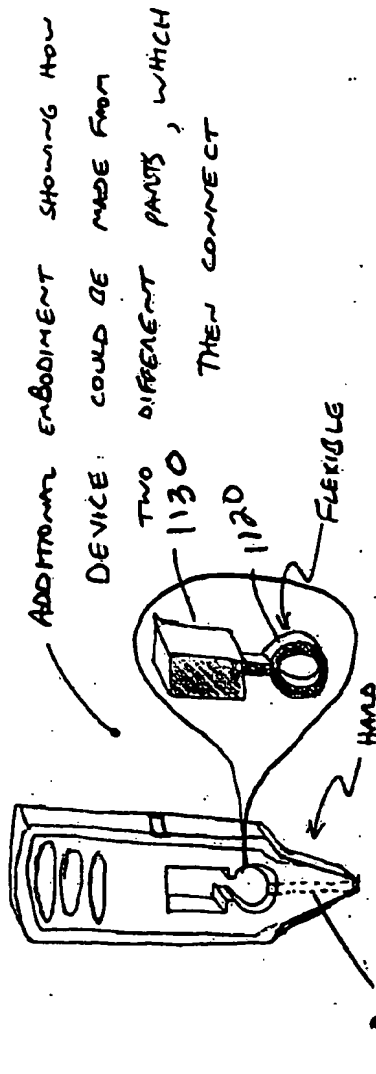 ADDITIONAL EMBODIMENT SHOWING HOW
DEVICE COULD BE MADE FROM
TWO DIFFERENT PARTS, WHICH
THEN CONNECT
1130
1120
FLEXIBLE
HARD